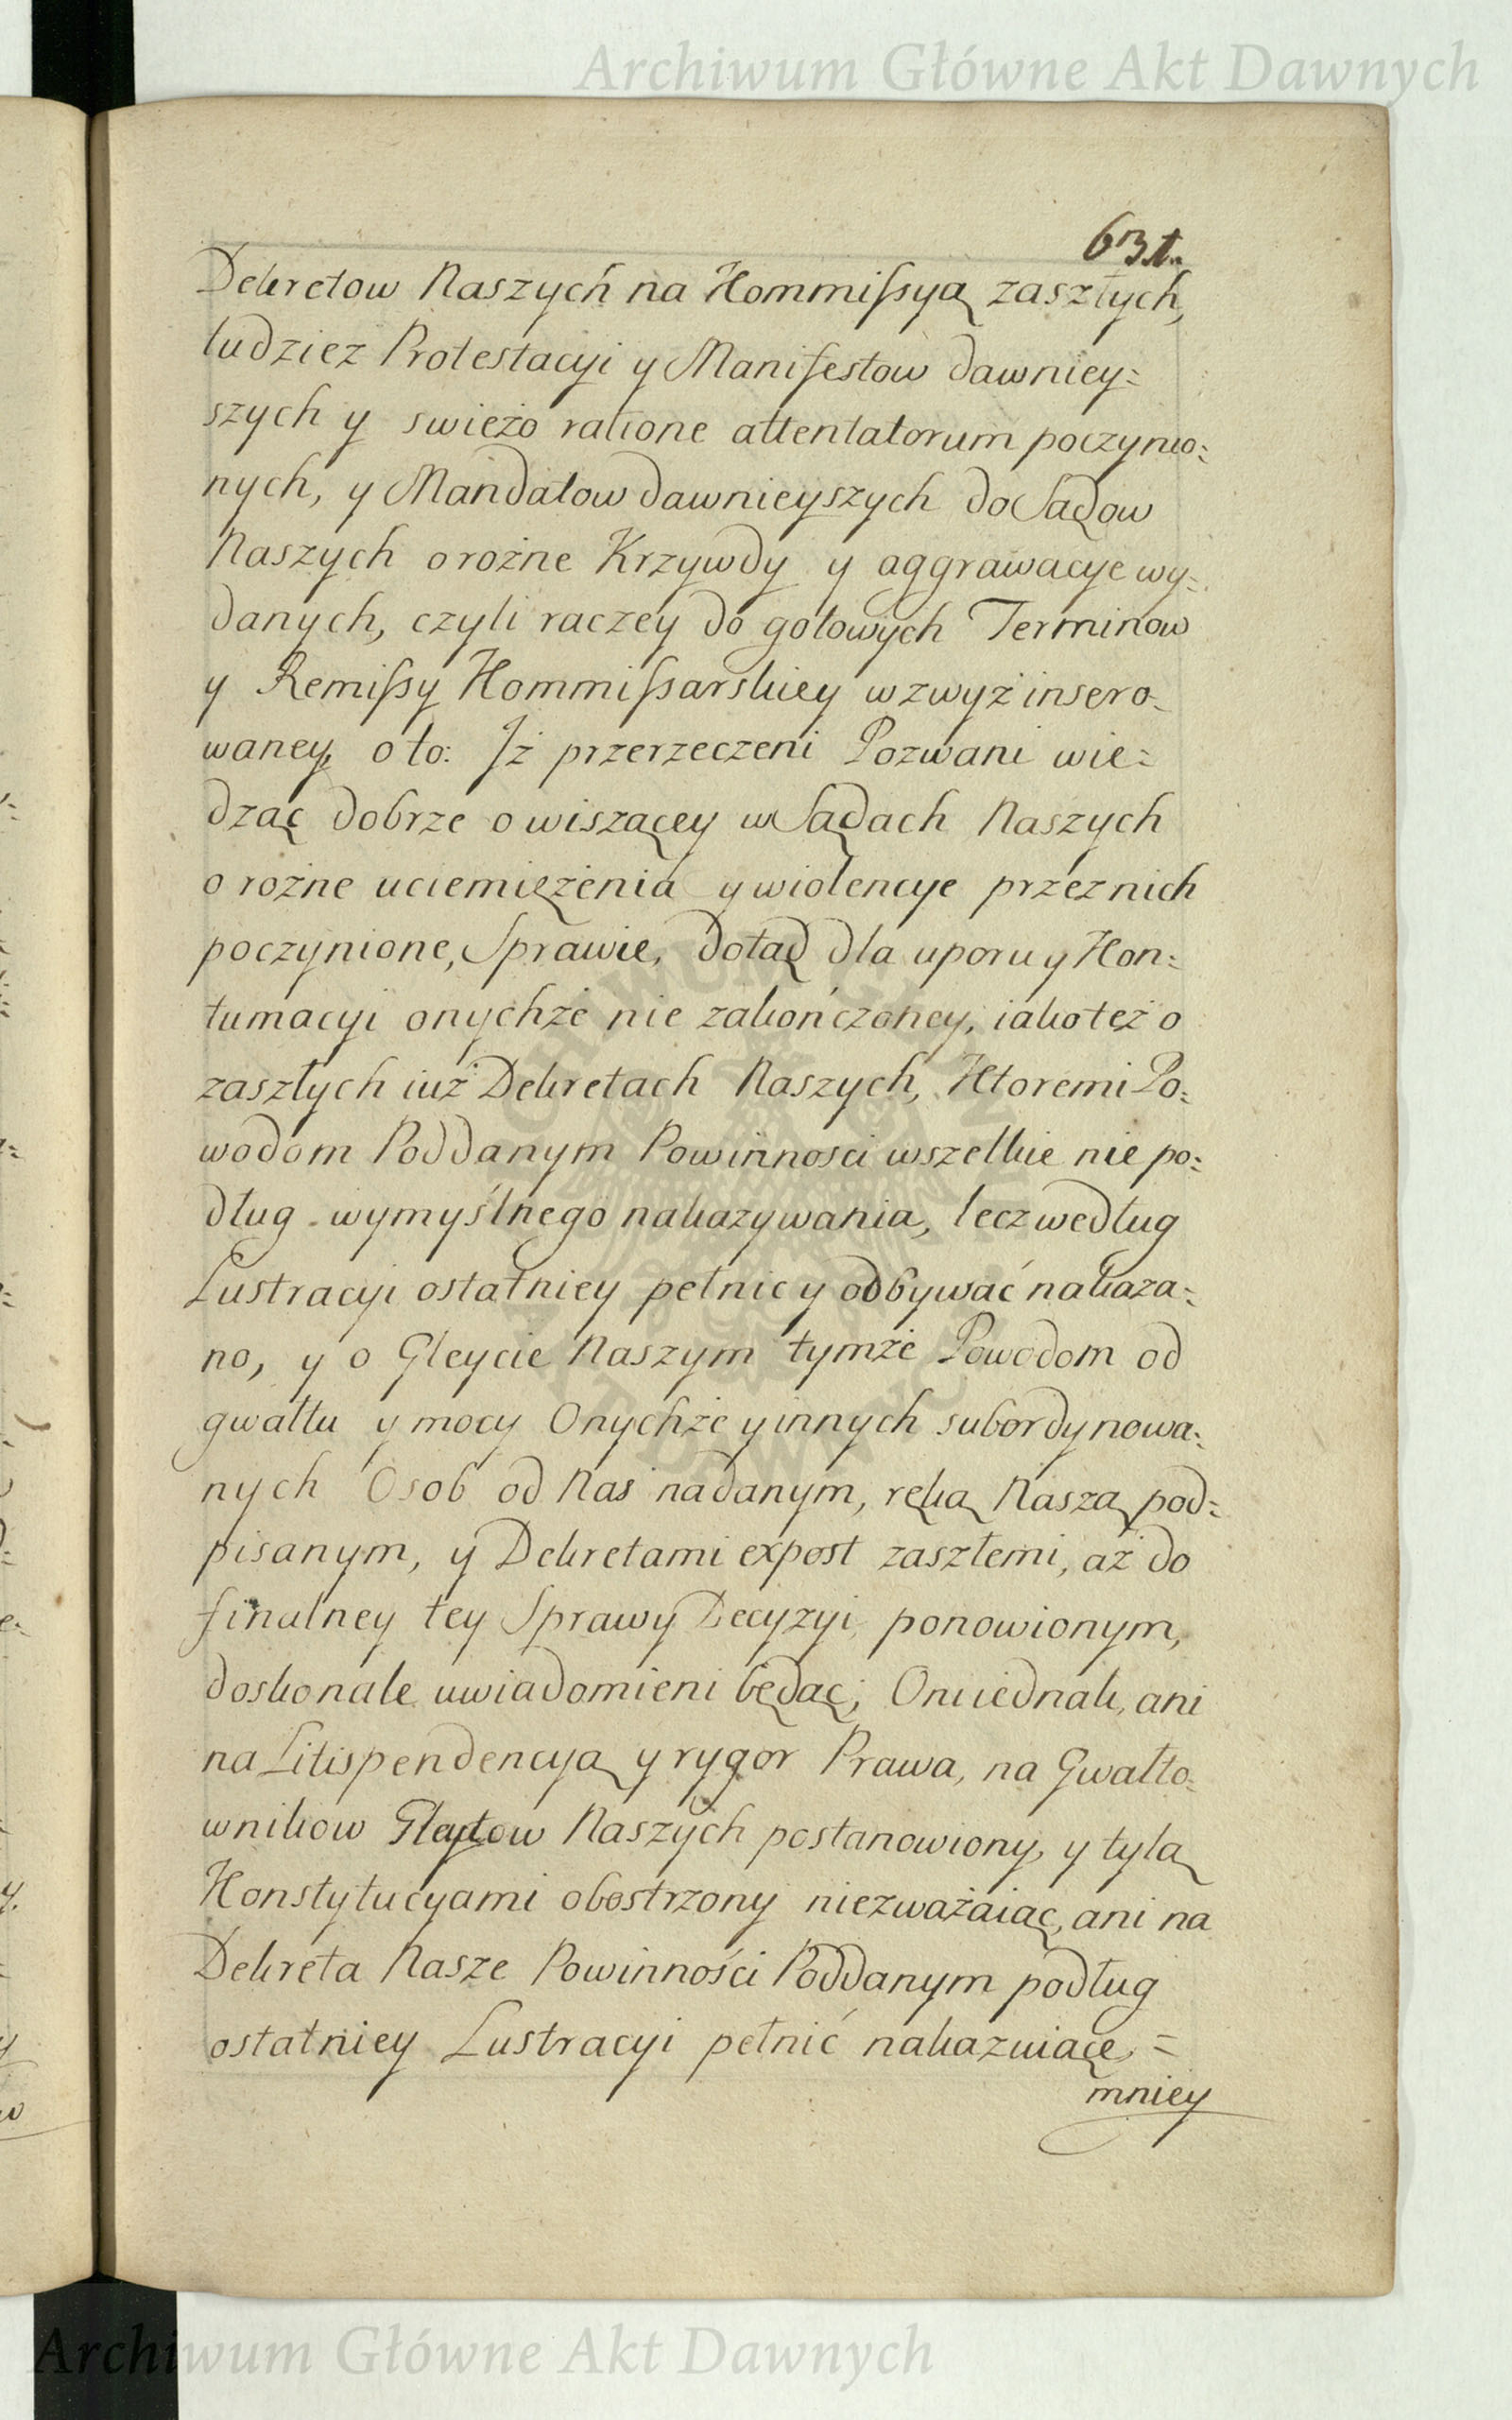 Archiwum Główne Akt Dawnych
631.
Dekretow Naszych na Kommissyą zaszłych,
tudziez Protestacyi y Manifestow dawniey=
szych y swieżo ratione attentatorum poczynio=
nych, y Mandatow dawnieyszych do Sądow
Naszych o rożne Krzywdy y aggrawacye wy=
danych, czyli raczey do gotowych Terminow
y Remissy Kommissarskiey wzwyż insero=
waney, o to: Jż przerzeczeni Pozwani wie=
dząc dobrze o wiszącey w Sądach Naszych
o rożne uciemiężenia y wiolencye przez nich
poczynione, Sprawie, dotąd dla uporu y Kon=
tumacyi onychże nie zakończoney, iako też o
zaszłych iuż Dekretach Naszych, Ktoremi Po=
wodom Poddanym Powinnosci wszelkie nie po=
dług wymyślnego nakazywania, lecz według
Lustracyi ostatniey pełnic y odbywać nakaza=
no, y o Gleycie Naszym tymże Powodom od
gwałtu y mocy Onychże y innych subordynowa=
nych Osob od Nas nadanym, ręką Naszą pod=
pisanym, y Dekretami expost zaszłemi, aż do
finalney tey Sprawy Decyzyi ponowionym,
doskonale uwiadomieni będąc; Oni iednak, ani
na Litispendencyą y rygor Prawa, na Gwałto=
wnikow Gleytow Naszych postanowiony, y tylą
Konstytucyami obostrzony niezważaiąc, ani na
Dekreta Nasze Powinności Poddanym podług
ostatniey Lustracyi pełnić nakazuiące, =
mniey
Archiwum Główne Akt Dawnych